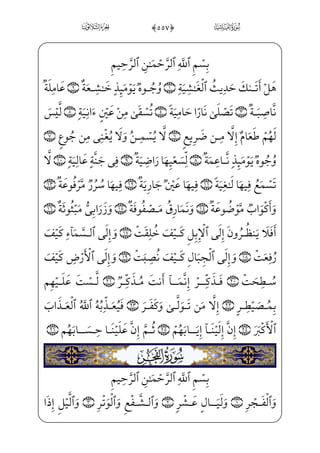 سُورَةُ الغَاشِيَةِ ﴿٥٥٧﴾ الجُزْءُ الثَّلَاثُونَ
بِسْمِ ٱللَّهِ ٱلرَّحْمَـٰنِ ٱلرَّحِيمِ
هَلْ أَتَىٰكَ حَدِيثُ ٱلْغَـٰشِيَةِ ۝١ وُجُوهٌ يَوْمَئِذٍ خَـٰشِعَةٌ ۝٢ عَامِلَةٌ
نَّاصِبَةٌ ۝٣ تَصْلَىٰ نَارًا حَامِيَةً ۝٤ تُسْقَىٰ مِنْ عَيْنٍ ءَانِيَةٍ ۝٥ لَّيْسَ
لَهُمْ طَعَامٌ إِلَّا مِن ضَرِيعٍ ۝٦ لَّا يُسْمِنُ وَلَا يُغْنِى مِن جُوعٍ ۝٧
وُجُوهٌ يَوْمَئِذٍ نَّاعِمَةٌ ۝٨ لِّسَعْيِهَا رَاضِيَةٌ ۝٩ فِى جَنَّةٍ عَالِيَةٍ ۝١٠ لَّا
تَسْمَعُ فِيهَا لَـٰغِيَةً ۝١١ فِيهَا عَيْنٌ جَارِيَةٌ ۝١٢ فِيهَا سُرُرٌ مَّرْفُوعَةٌ ۝١٣
وَأَكْوَابٌ مَّوْضُوعَةٌ ۝١٤ وَنَمَارِقُ مَصْفُوفَةٌ ۝١٥ وَزَرَابِىُّ مَبْثُوثَةٌ ۝١٦
أَفَلَا يَنظُرُونَ إِلَى ٱلْإِبِلِ كَيْفَ خُلِقَتْ ۝١٧ وَإِلَى ٱلسَّمَآءِ كَيْفَ
رُفِعَتْ ۝١٨ وَإِلَى ٱلْجِبَالِ كَيْفَ نُصِبَتْ ۝١٩ وَإِلَى ٱلْأَرْضِ كَيْفَ
سُطِحَتْ ۝٢٠ فَذَكِّرْ إِنَّمَآ أَنتَ مُذَكِّرٌ ۝٢١ لَّسْتَ عَلَيْهِم
بِمُصَيْطِرٍ ۝٢٢ إِلَّا مَن تَوَلَّىٰ وَكَفَرَ ۝٢٣ فَيُعَذِّبُهُ ٱللَّهُ ٱلْعَذَابَ
ٱلْأَكْبَرَ ۝٢٤ إِنَّ إِلَيْنَآ إِيَابَهُمْ ۝٢٥ ثُمَّ إِنَّ عَلَيْنَا حِسَابَهُم ۝٢٦
سُورَةُ الفَجْرِ
بِسْمِ ٱللَّهِ ٱلرَّحْمَـٰنِ ٱلرَّحِيمِ
وَٱلْفَجْرِ ۝١ وَلَيَالٍ عَشْرٍ ۝٢ وَٱلشَّفْعِ وَٱلْوَتْرِ ۝٣ وَٱلَّيْلِ إِذَا